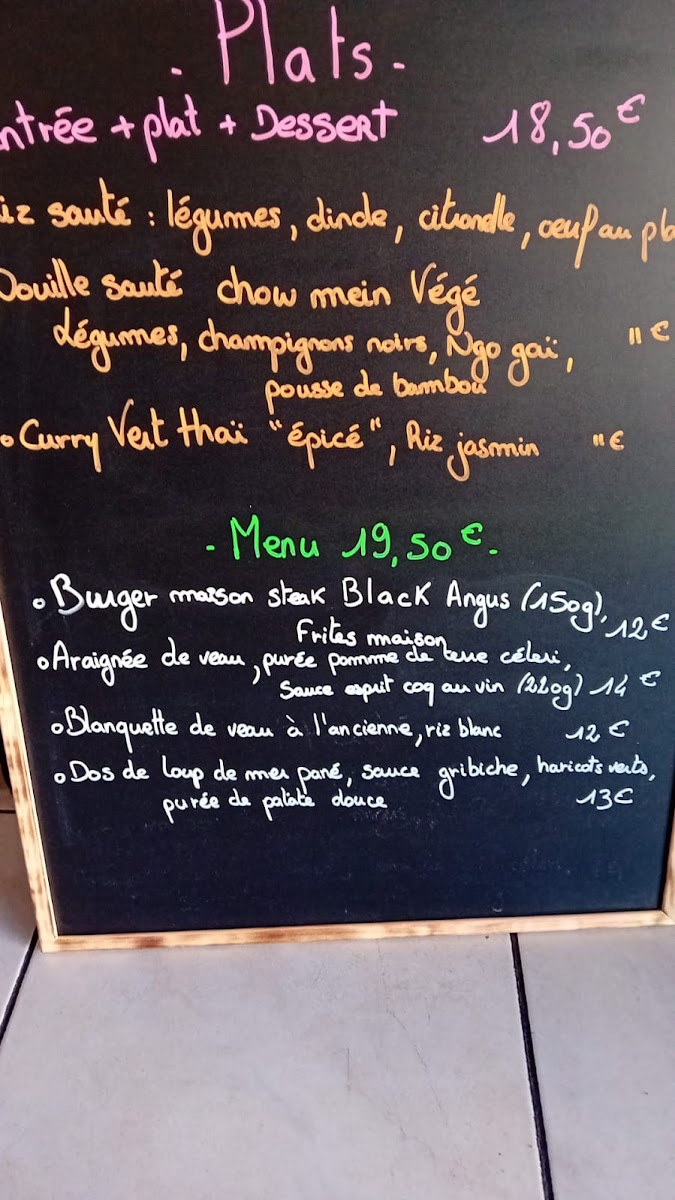 - Plats -
ntrée + plat + Dessert 18,50€
iz sauté : légumes, dinde, citronelle, œuf au pla
Douille sauté chow mein Végé
Légumes, champignons noirs, Ngo gaï, 11€
pousse de bambou
• Curry Vert thaï "épicé", Riz jasmin 11€
- Menu 19,50€ -
• Burger maison steak Black Angus (150g),
Frites maison 12€
• Araignée de veau, purée pomme de terre céleri,
Sauce esprit coq au vin (220g) 14€
• Blanquette de veau à l'ancienne, riz blanc 12€
• Dos de loup de mer pané, sauce gribiche, haricots verts,
purée de patate douce 13€